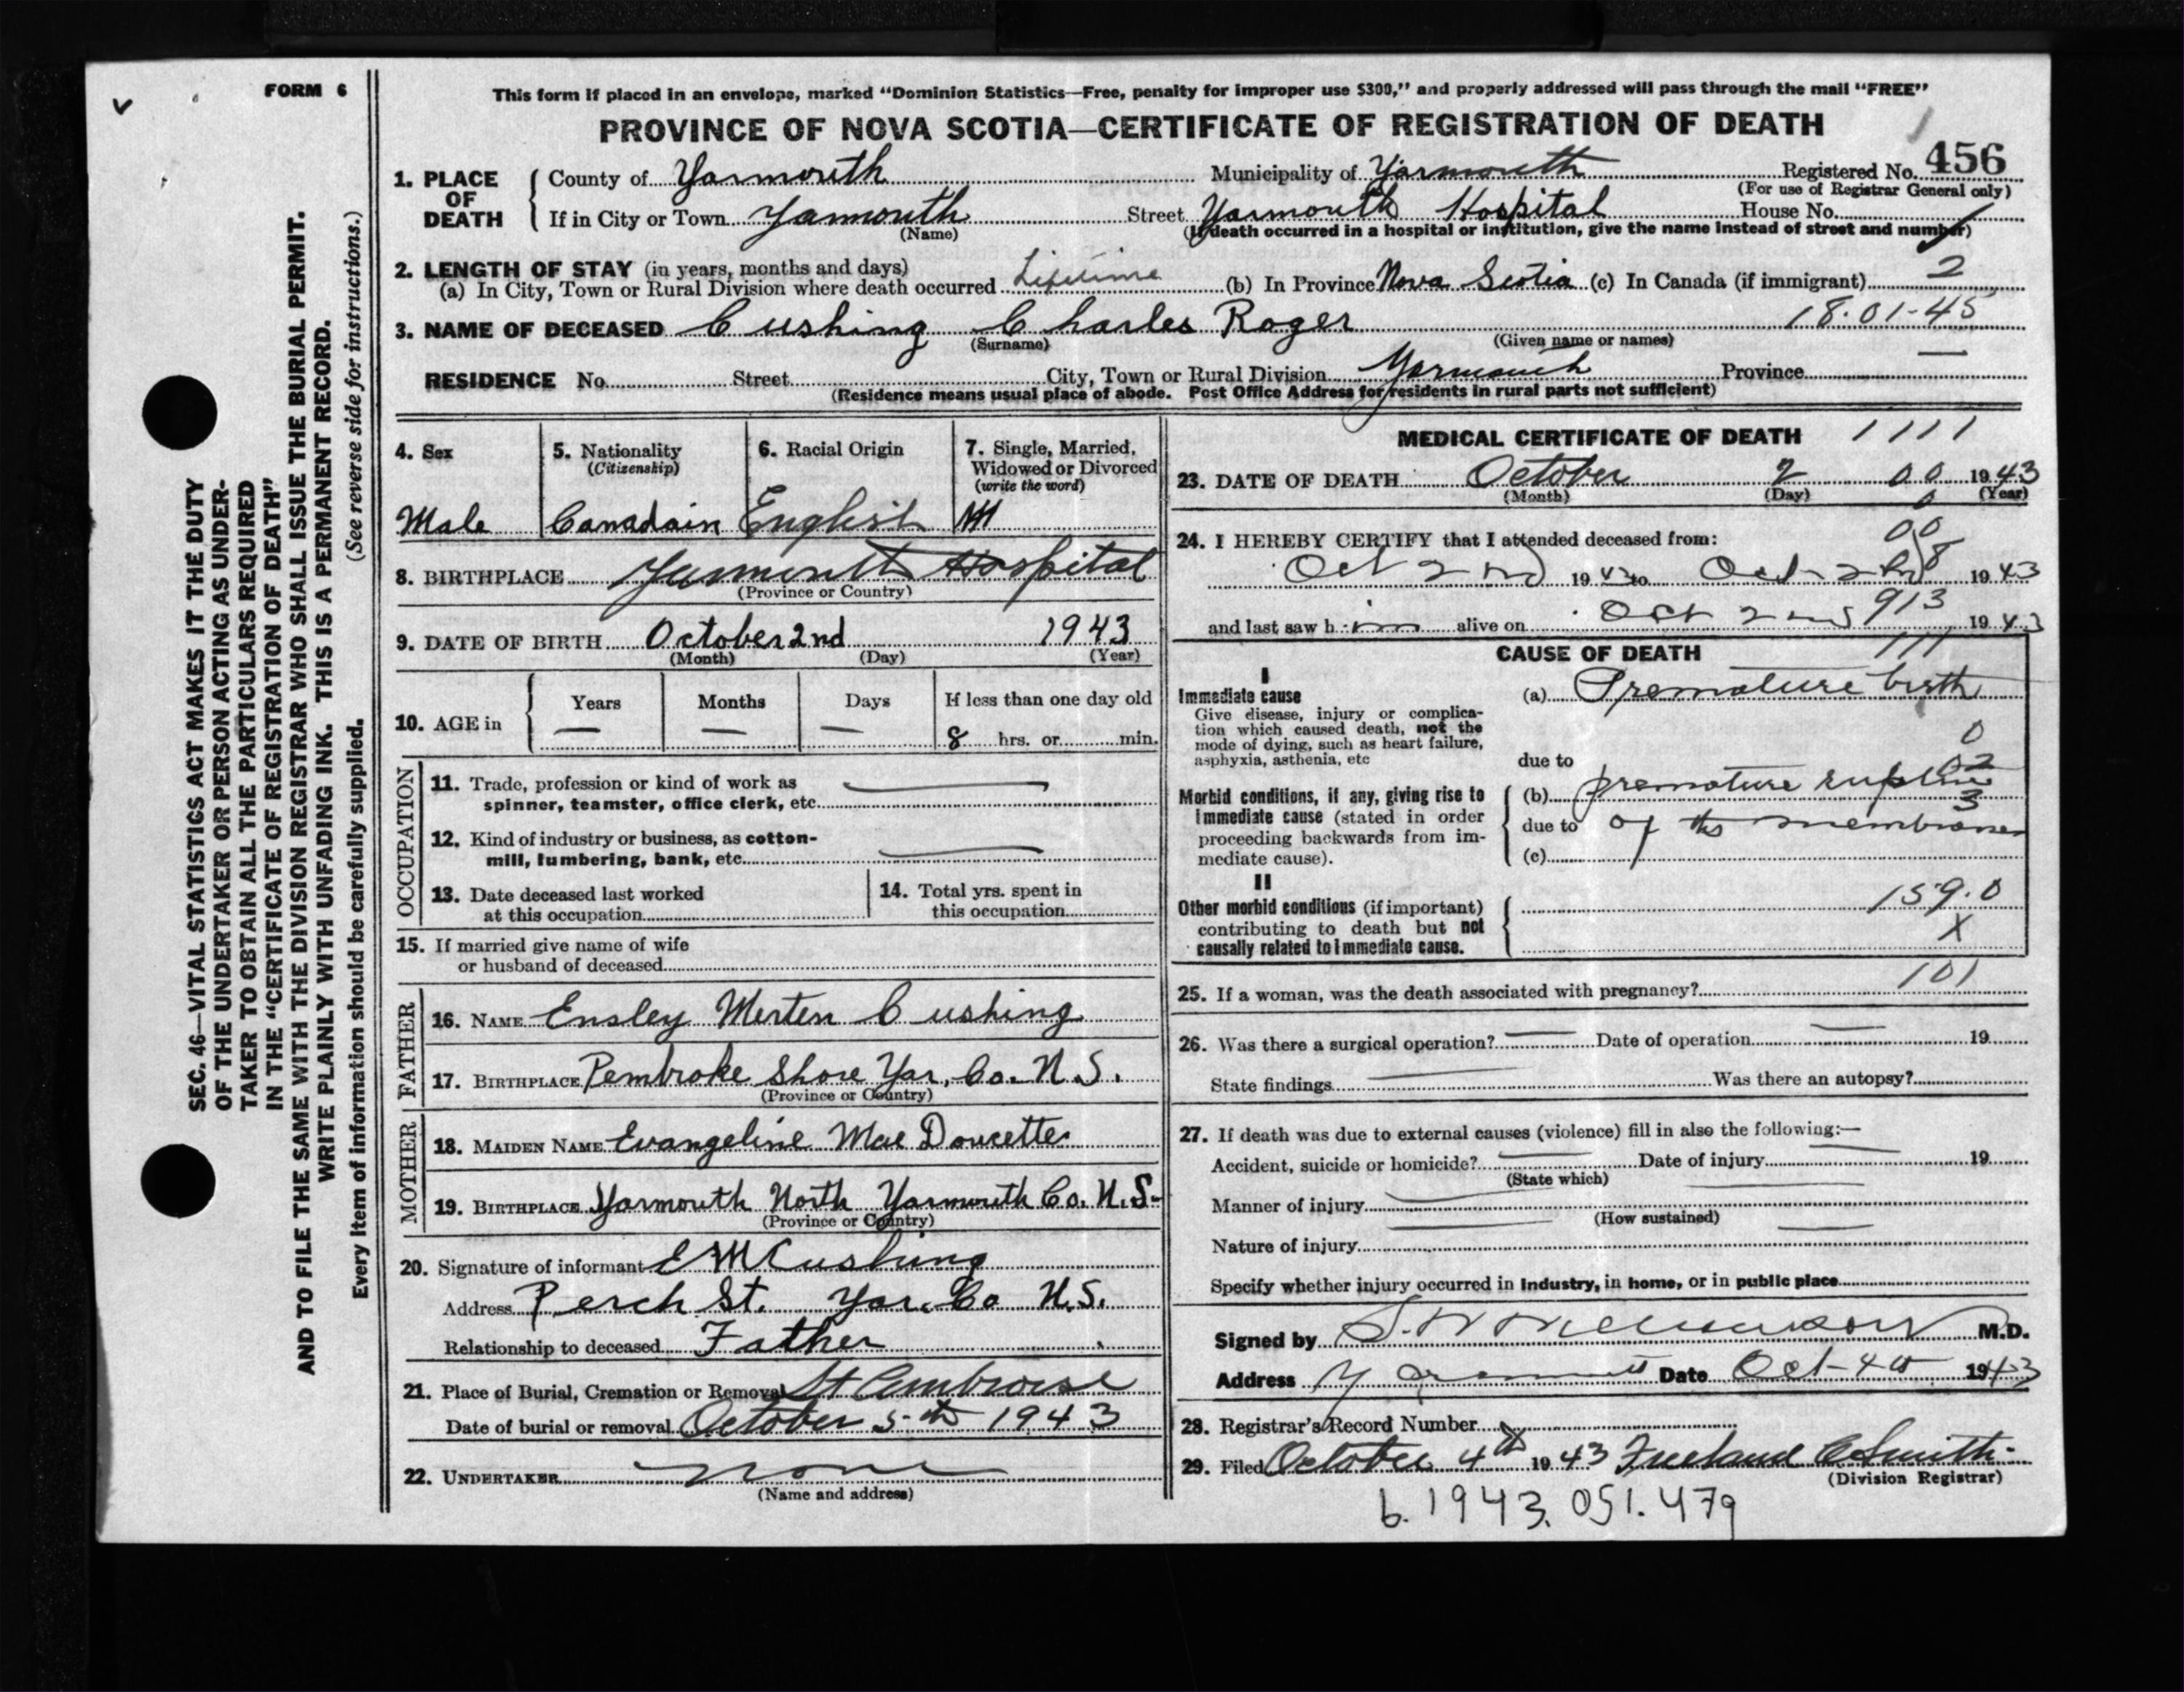 FORM 6
This form if placed in an envelope, marked "Dominion Statistics—Free, penalty for improper use $300," and properly addressed will pass through the mail "FREE"
PROVINCE OF NOVA SCOTIA—CERTIFICATE OF REGISTRATION OF DEATH
1. PLACE OF DEATH
County of Yarmouth Municipality of Yarmouth Registered No. 456
(For use of Registrar General only)
If in City or Town Yarmouth Street Yarmouth Hospital House No.
(Name) (If death occurred in a hospital or institution, give the name instead of street and number)
2. LENGTH OF STAY (in years, months and days) 2
(a) In City, Town or Rural Division where death occurred Lifetime (b) In Province Nova Scotia (c) In Canada (if immigrant)
3. NAME OF DECEASED Cushing Charles Roger 18.01-45
(Surname) (Given name or names)
RESIDENCE No. Street City, Town or Rural Division Yarmouth Province —
(Residence means usual place of abode. Post Office Address for residents in rural parts not sufficient)
4. Sex
Male
5. Nationality
(Citizenship)
Canadain
6. Racial Origin
English
7. Single, Married,
Widowed or Divorced
(write the word)
8. BIRTHPLACE Yarmouth Hospital
(Province or Country)
9. DATE OF BIRTH October 2nd 1943
(Month) (Day) (Year)
10. AGE in
Years Months Days If less than one day old
— — — 8 hrs. or min.
OCCUPATION
11. Trade, profession or kind of work as
spinner, teamster, office clerk, etc. —
12. Kind of industry or business, as cotton-
mill, lumbering, bank, etc. —
13. Date deceased last worked
at this occupation
14. Total yrs. spent in
this occupation
15. If married give name of wife
or husband of deceased
FATHER
16. NAME Ensley Merten Cushing
17. BIRTHPLACE Pembroke Shore Yar. Co. N.S.
(Province or Country)
MOTHER
18. MAIDEN NAME Evangeline Mae Doucette
19. BIRTHPLACE Yarmouth North Yarmouth Co. N.S.
(Province or Country)
20. Signature of informant E M Cushing
Address Perch St. Yar. Co N.S.
Relationship to deceased Father
21. Place of Burial, Cremation or Removal St Ambroise
Date of burial or removal October 5th 1943
22. UNDERTAKER none
(Name and address)
MEDICAL CERTIFICATE OF DEATH 1111
23. DATE OF DEATH October 2 00 1943
(Month) (Day) 0 (Year)
24. I HEREBY CERTIFY that I attended deceased from: 00
Oct 2nd 1943 to Oct 2nd 8 1943
and last saw him alive on Oct 2nd 913 1943
CAUSE OF DEATH 111
I
Immediate cause
Give disease, injury or complica-
tion which caused death, not the
mode of dying, such as heart failure,
asphyxia, asthenia, etc
(a) Premature birth
0
due to
02
Morbid conditions, if any, giving rise to
immediate cause (stated in order
proceeding backwards from im-
mediate cause).
(b) premature rupture
3
due to of the membranes
(c)
II
Other morbid conditions (if important)
contributing to death but not
causally related to immediate cause.
159.0
X
101
25. If a woman, was the death associated with pregnancy?
26. Was there a surgical operation? — Date of operation — 19
State findings — Was there an autopsy?
27. If death was due to external causes (violence) fill in also the following:—
Accident, suicide or homicide? — Date of injury — 19
(State which)
Manner of injury —
(How sustained)
Nature of injury —
Specify whether injury occurred in industry, in home, or in public place
Signed by M.D.
Address Yarmouth Date Oct 4th 1943
28. Registrar's Record Number
29. Filed October 4th 1943 Freeland C Smith
(Division Registrar)
b. 1943. 051. 479
SEC. 46—VITAL STATISTICS ACT MAKES IT THE DUTY
OF THE UNDERTAKER OR PERSON ACTING AS UNDER-
TAKER TO OBTAIN ALL THE PARTICULARS REQUIRED
IN THE "CERTIFICATE OF REGISTRATION OF DEATH"
AND TO FILE THE SAME WITH THE DIVISION REGISTRAR WHO SHALL ISSUE THE BURIAL PERMIT.
WRITE PLAINLY WITH UNFADING INK. THIS IS A PERMANENT RECORD.
Every item of information should be carefully supplied. (See reverse side for instructions.)